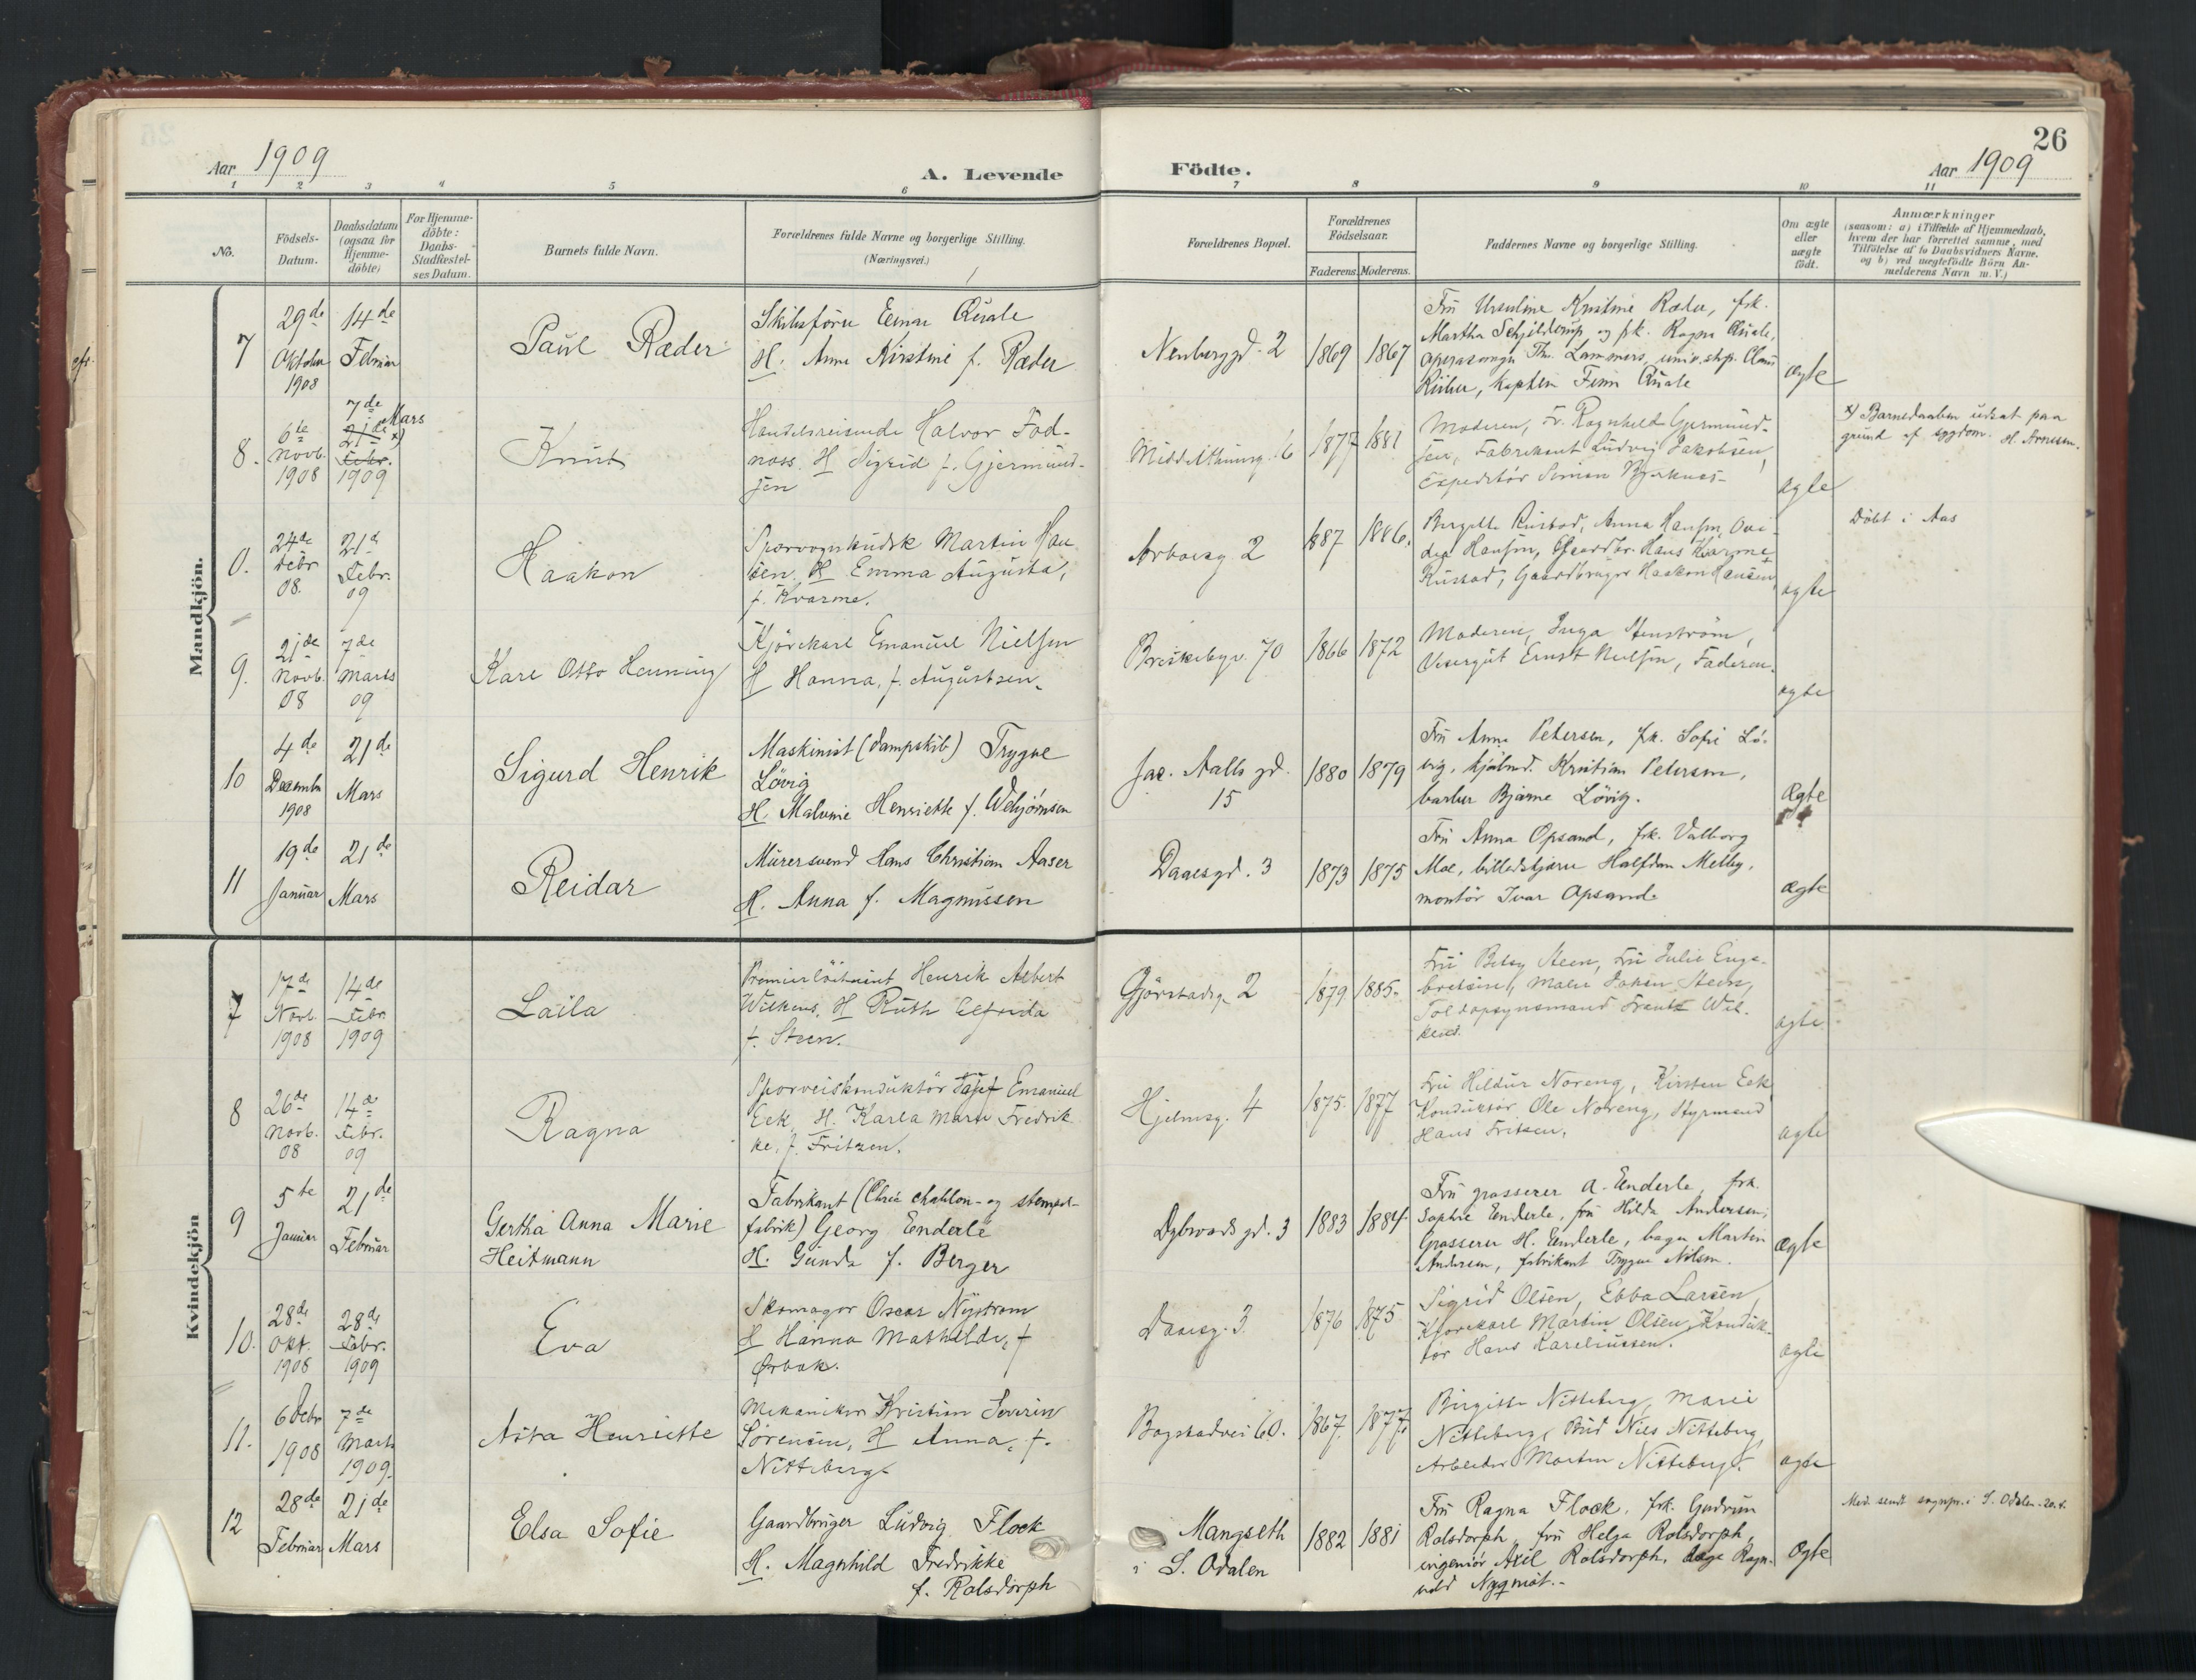 26
Aar 1909
A. Levende
Födte.
Aar 1909
1 2 3 4 5 6 7 8 9 10 11
No.
Födsels-
Datum.
Daabsdatum
(ogsaa for
Hjemme-
döbte)
For Hjemme-
döbte:
Daabs-
Stadfæstel-
ses Datum.
Barnets fulde Navn.
Forældrenes fulde Navne og borgerlige Stilling.
(Næringsvei.)
Forældrenes Bopæl.
Forældrenes
Födselsaar.
Faderens. Moderens.
Faddernes Navne og borgerlige Stilling.
Om ægte
eller
uægte
født.
Anmærkninger
(saasom: a) i Tilfælde af Hjemmedaab,
hvem der har forrettet samme, med
Tilföielse af to Daabsvidners Navne.
og b) ved uægtefödte Börn An-
melderens Navn m. V.)
Mandkjön.
7
29de
Oktober
1908
14de
Februar
Paul Ræder
Skibsförer Einar Quale
H. Anna Kirstine f. Ræder
Nenberggd. 2
1869
1867
Fru Ursuline Kristine Ræder, frk.
Martha Schjelderup og frk. Ragna Quale,
operasanger Th. Lammers, univ.stip.
kaptein Finn Quale
ægte
8.
6te
Novb.
1908
7de Mars
21de x)
Febr.
1909
Knut
Handelsreisende Halvor Fod-
nass. H Sigrid f. Gjermund-
sen
Midd.elthunsg. 6
1877
1881
Moderen, Fr. Ragnhild Gjermund-
sen, Fabrikant Ludvig Jakobsen,
Expeditör Simon Bjerknes-
ægte
x) Barnedaaben udsat paa
grund af sygdom. H. Arnesen.
0.
24de
Febr
08.
21d
Febr.
09
Haakon
Sporvognskudsk Martin Han
sen. H Emma Augusta,
f. Kvarme.
Arboesg 2
1887
1886.
Birgitte Rustad, Anna Hansen,
Hansen, Gaardbr. Hans Kvarme
Rustad, Gaardbruger Haakon Hansen
ægte
Döbt i Aas
9.
21de
Novb.
08
7de
Marts
09
Karl Otto Henning
Kjörekarl Emanuel Nielsen
H Hanna, f. Augustsen.
Briskebyv. 70
1866
1872
Moderen, Inga Stenström,
Visergut Ernst Nielsen, Faderen.
ægte
10
4de
Decembr
1908
21de
Mars
Sigurd Henrik
Maskinist (dampskib) Trygve
Lövig
H. Malvine Henriette f. Webjörnsen
Jac. Aalls gd.
15
1880
1879
Fru Anna Petersen, frk. Sofie Lö-
vig, Kristian Petersen,
barber Bjarne Lövig.
Ægte
11
19de
Januar
21de
Mars
Reidar
Murersvend Hans Christian Aaser
H. Anna f. Magnussen
Daaesgd. 3
1873
1875
Fru Anna Opsand, frk. Valborg
Moe, billedskjærer Halfdan Melby,
montör Ivar Opsand.
ægte
Kvindekjön
7
17de
Novb.
1908
14de
Febr
1909
Laila
Premierlöitnant Henrik Albert
Wilkens, H Ruth Elfrida
f. Steen.
Gjörstadsg. 2
1879
1885.
Fru Betsy Steen, Fru Julie Enge-
bretsen, Maler Johan Steen,
Toldopsynsmand Frantz Wil-
kens.
ægte
8
26de
Novb.
08
14de
Febr.
09
Ragna
Sporveiskonduktör Josef Emanuel
Eek, H. Karla Marie Fredrik
ke, f. Fritzen.
Hjelmsg. 4
1875.
1877
Fru Hildur Noreng, Kirsten Eek
Konduktör Ole Noreng, Styrmand
Hans Fritzen.
ægte
9
5te
Januar
21de
Februar
Gertha Anna Marie
Heitmann
Fabrikant (Chra chablon- og stempel-
fabrik) Georg Enderle
H. Gunda f. Berger
Dybwads gd. 3
1883
1884.
Fru grosserer A. Enderle, frk.
Sophie Enderle, fru Hilda Andersen,
Grosserer H. Enderle, bager Martin
Andersen, fabrikant Trygve Nilsen.
Ægte
10.
28de
Okt.
1908
28de
Febr.
1909
Eva
Skomager Oscar Nyström
H Hanna Mathilde, f
Ørbæk.
Daaesg. 3
1876
1875.
Sigrid Olsen, Ebba Larsen,
Kjörekarl Martin Olsen, Konduk-
tör Hans Kareliussen.
ægte
11.
6 Debr
1908
7de
Marts
1909.
Asta Henriette
Mekaniker Kristian Severin
Sörensen, H Anna, f.
Nitteberg.
Bogstadvei 60.
1867.
1877.
Birgitte Nitteberg, Marie
Nitteberg, Bud Nils Nitteberg,
Arbeider Morten Nitteberg.
ægte
12
28de
Februar
21de
Mars
Elsa Sofie
Gaardbruger Ludvig Flock
H. Magnhild Fredrikke
f. Rolsdorph
Mangseth
i S. Odalen
1882
1881
Fru Ragna Flock, frk. Gudrun
Rolsdorph, fru Helga Rolsdorph,
ingeniör Axel Rolsdorph, læge Ragn-
vald Nyqmöt.-
Ægte
Med. sendt sognepr. i S. Odalen. 20.4.